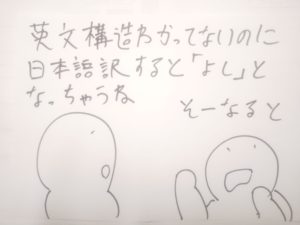 英文構造わかってないのに
日本語訳すると「よし」と
なっちゃうね
そーなると